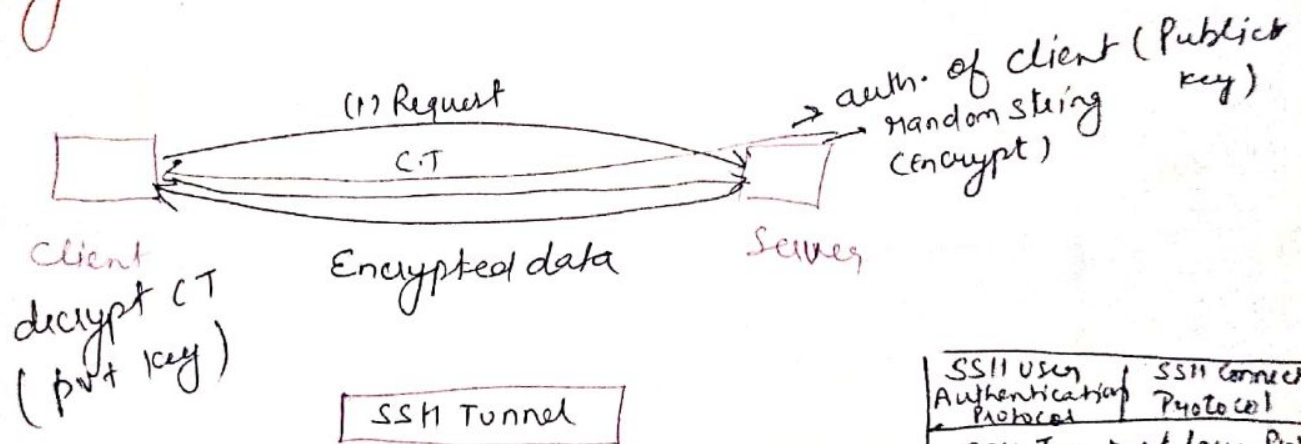 (1) Request
C.T
Encrypted data
→ auth. of client (Public key)
→ random string
(Encrypt)
Client
Server
decrypt CT
(pvt key)
SSH Tunnel
SSH User
Authentication
Protocol
SSH Connec
Protocol